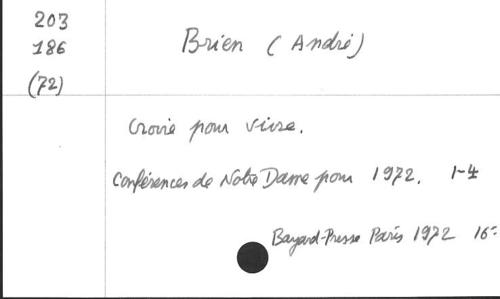 203
186
(72)
Brien (André)
Croire pour vivre.
Conférences de Notre Dame pour 1972. 1-4
Bayard-Presse Paris 1972 16°